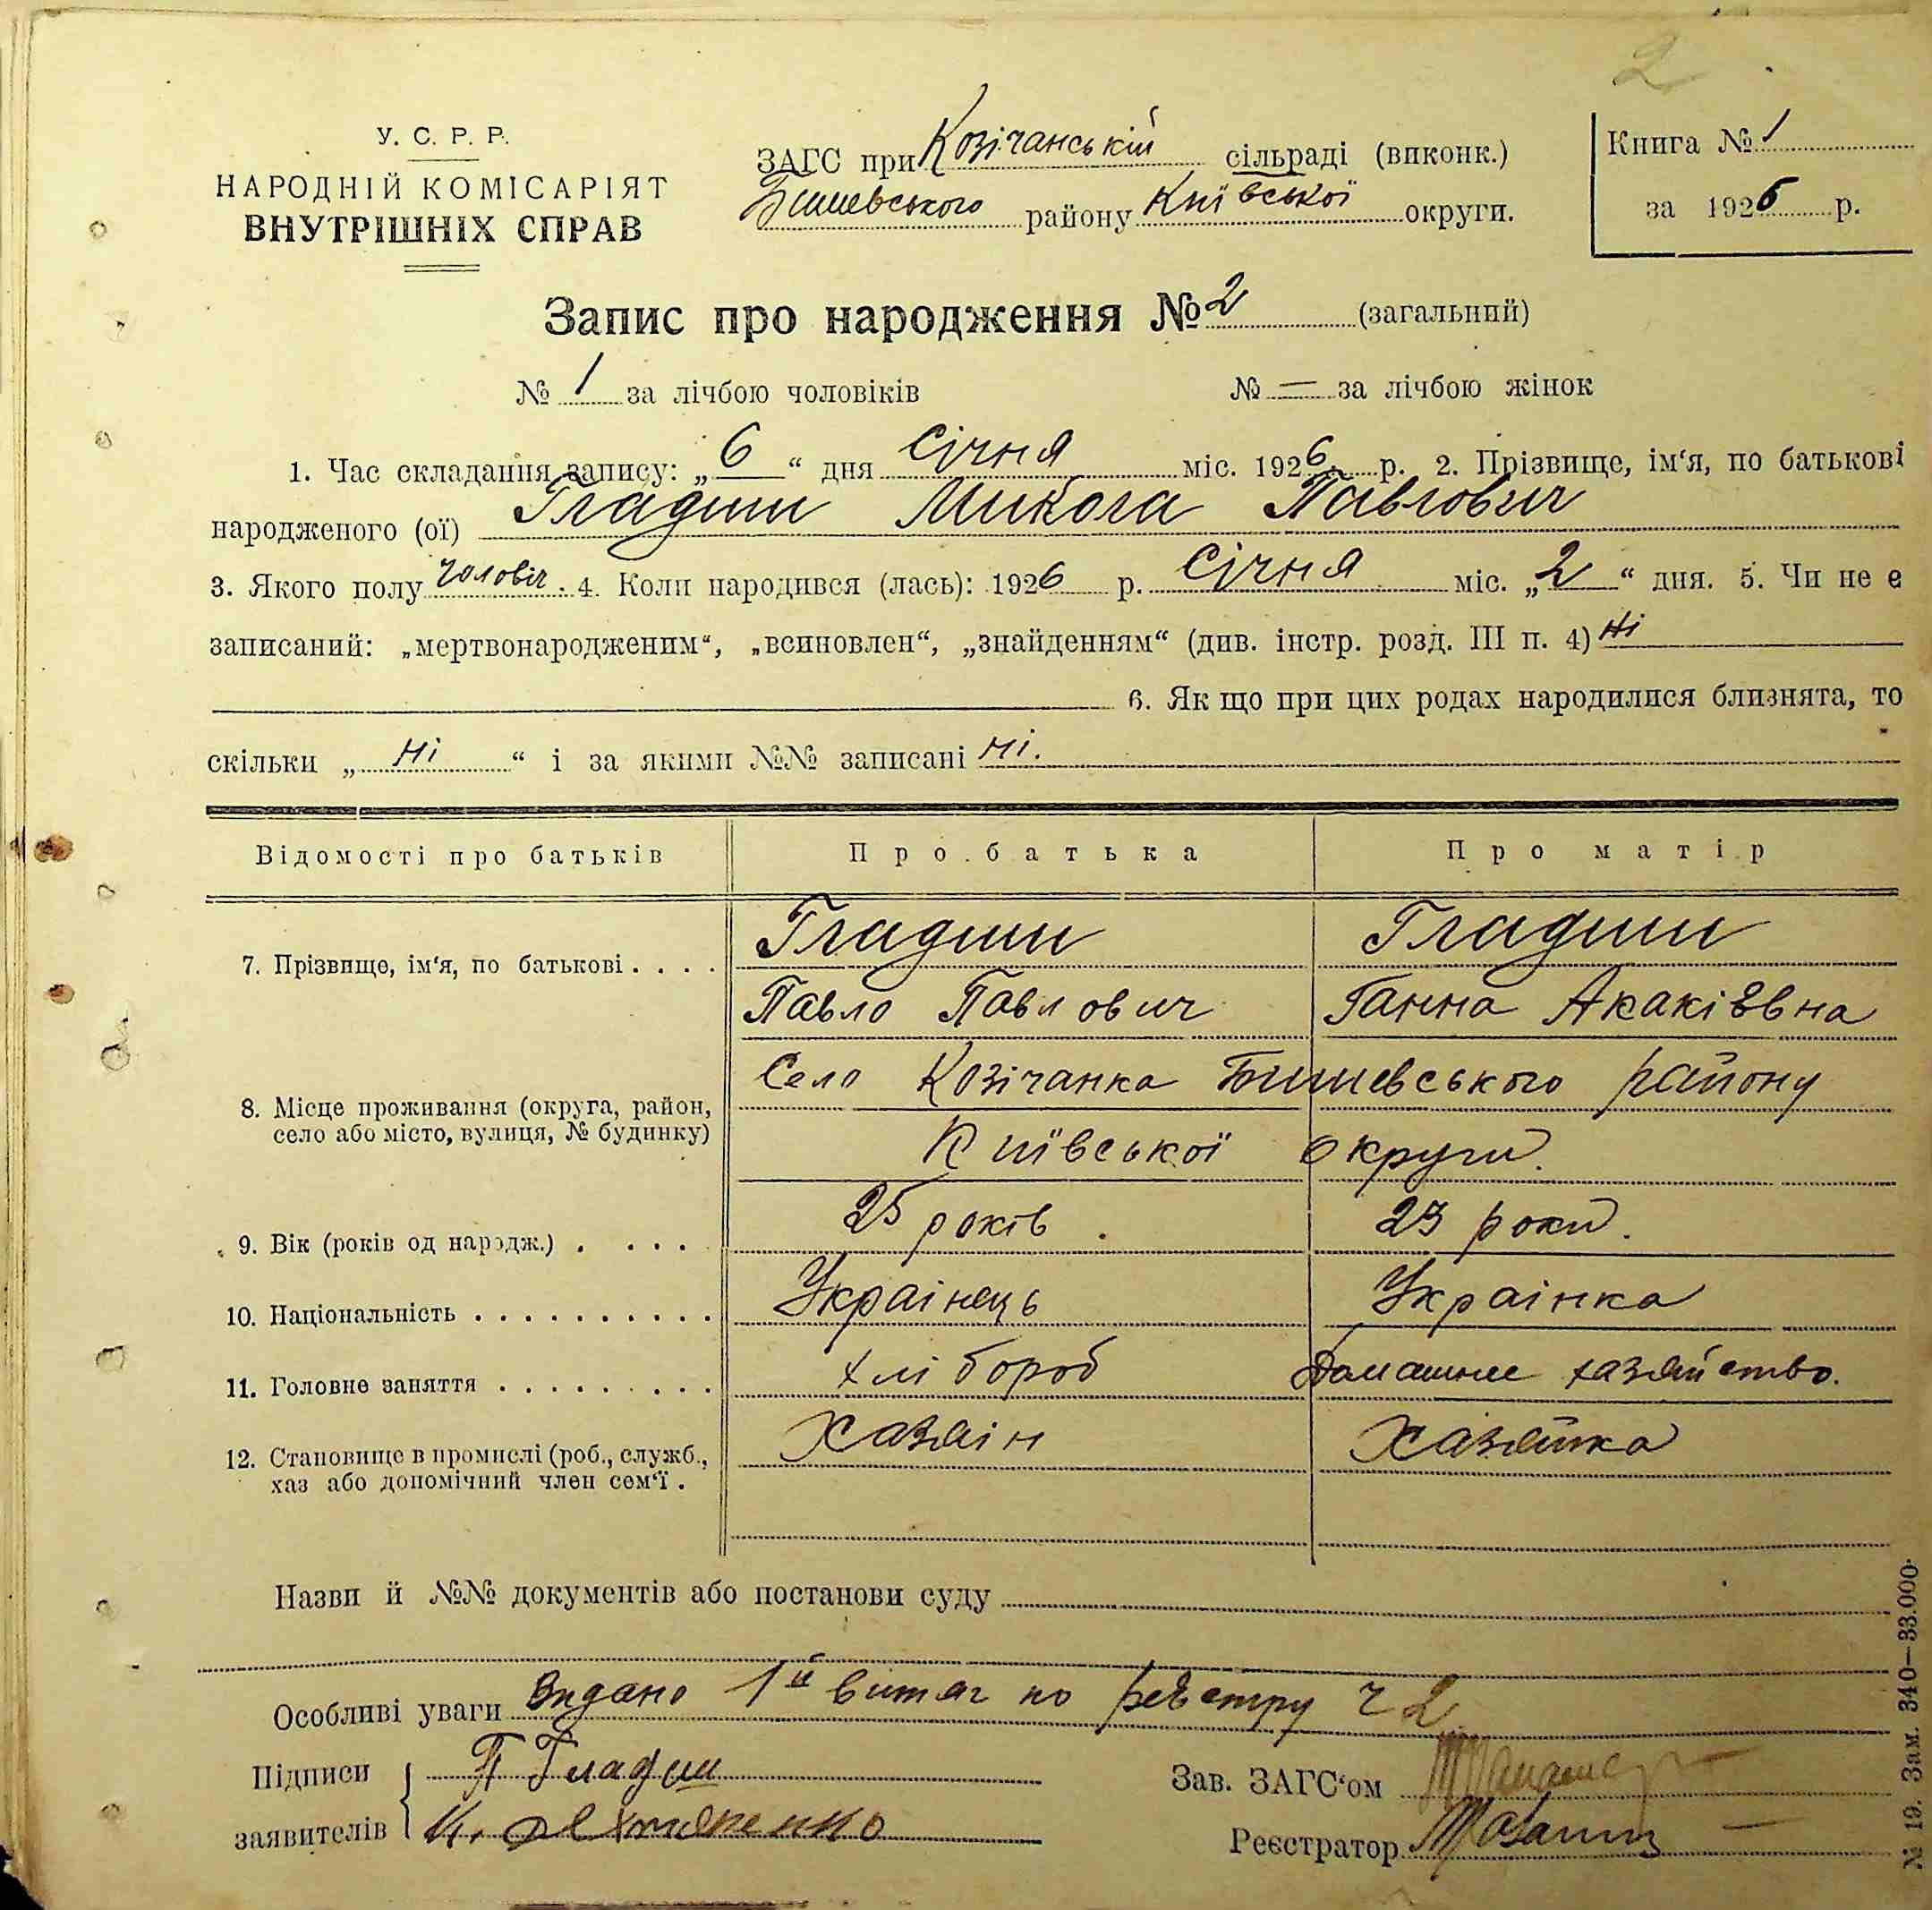 2
У. С. Р. Р.
НАРОДНІЙ КОМІСАРІЯТ
ВНУТРІШНІХ СПРАВ
ЗАГС при Козічанській сільраді (виконк.)
Бишевського району Київської округи.
Книга № 1
за 1926 р.
Запис про народження № 2 (загальний)
№ 1 за лічбою чоловіків № — за лічбою жінок
1. Час складання запису: „6“ дня Січня міс. 1926 р. 2. Прізвище, ім'я, по батькові
народженого (ої) Гладиш Микола Павлович
3. Якого полу чоловіч. 4. Коли народився (лась): 1926 р. Січня міс. „2“ дня. 5. Чи не є
записаний: „мертвонародженим“, „всиновлен“, „знайденням“ (див. інстр. розд. III п. 4) Ні
6. Як що при цих родах народилися близнята, то
скільки „Ні“ і за якими №№ записані Ні.
Відомості про батьків Про батька Про матір
7. Прізвище, ім'я, по батькові.... Гладиш Гладиш
Павло Павлович Ганна Акакіївна
8. Місце проживання (округа, район, село або місто, вулиця, № будинку) Село Козічанка Бишевського району
Київської округи.
9. Вік (років од народж.) .... 25 років. 23 роки.
10. Національність .......... Украінець Украінка
11. Головне заняття ......... хлібороб Домашнєе хазяйство.
12. Становище в промислі (роб., служб., хаз або допомічний член сем'ї. Хазяін Хазяйка
Назви й №№ документів або постанови суду
Особливі уваги Видано 1й витяг по реєстру ч 2
Підписи П Гладиш
заявителів
Зав. ЗАГС'ом
Реєстратор
№ 19. Зам. 340—33.000.